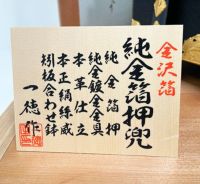 金沢箔
純金箔押兜
純金箔押
純金鍍金金具
本革仕立
本正絹糸威
矧板合わせ鉢
一徳作